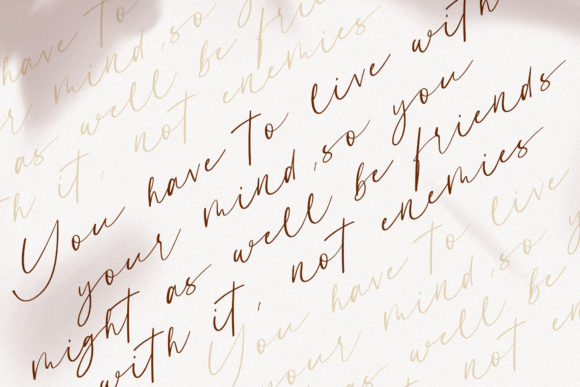 have to
r mind ,so you
as well be friends
h it, not enemies
You have to live with
your mind ,so you
might as well be friends
with it, not enemies
You have to live
your mind ,so y
as well be
not enem